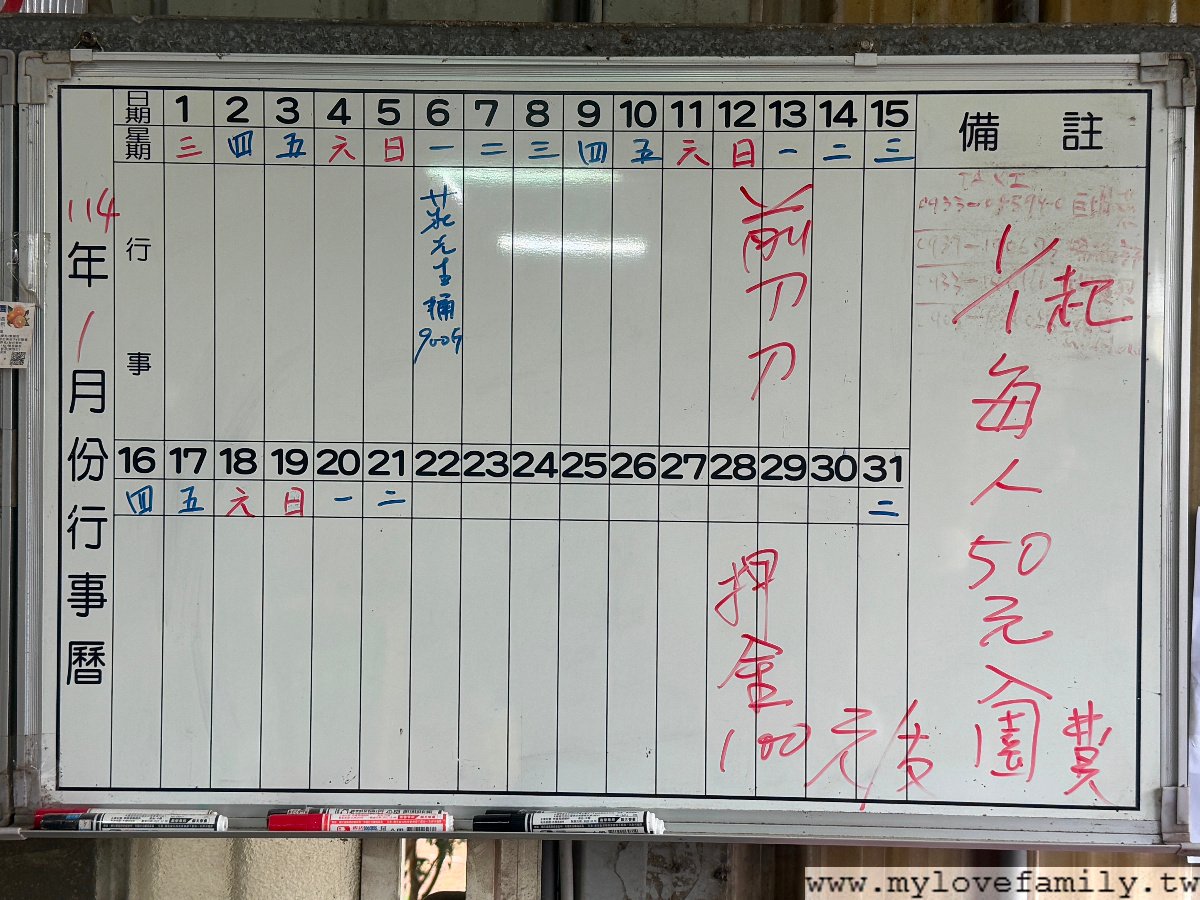 114年1月份行事曆
日期 1 2 3 4 5 6 7 8 9 10 11 12 13 14 15
星期 三 四 五 六 日 一 二 三 四 五 六 日 一 二 三
行事
先生
桶
900斤
剪刀刀
16 17 18 19 20 21 22 23 24 25 26 27 28 29 30 31
四 五 六 日 一 二 二
押金
100元/支
備註
TAXI
1/1起
每人
50元
入園費
www.mylovefamily.tw